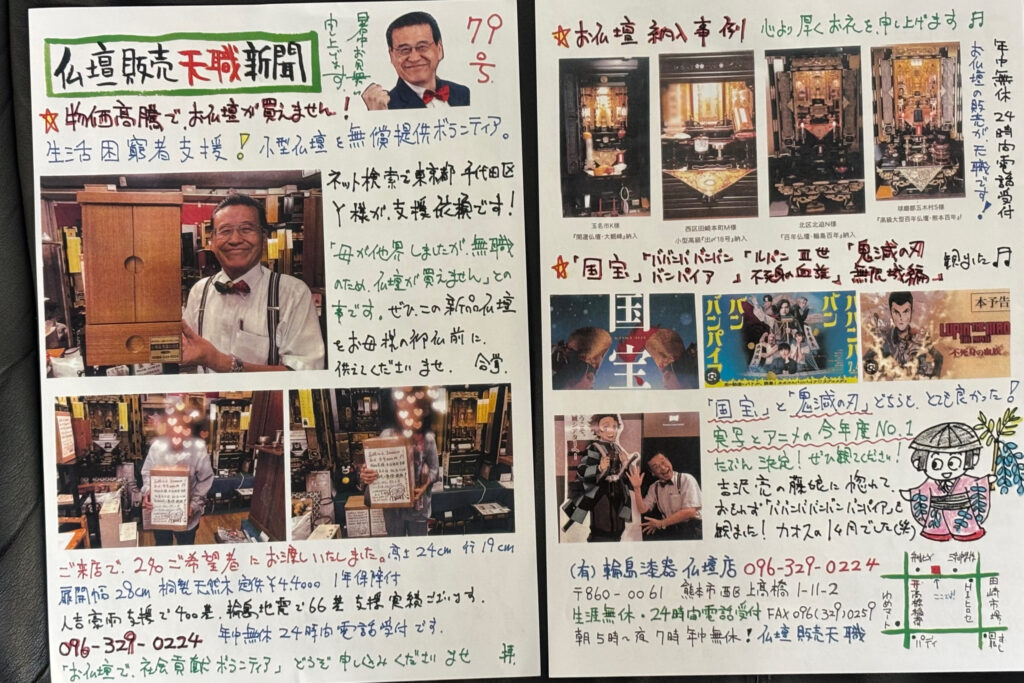 仏壇販売天職新聞
暑中お見舞い
申し上げます。
79
☆物価高騰で、お仏壇が買えません！
生活困窮者支援！小型仏壇を無償提供ボランティア。
ネット検索で東京都千代田区
Y様が、支援依頼です！
「母が他界しましたが、無職
のため、仏壇が買えません」との
事です。ぜひ、この新品仏壇
をお母様の御仏前に、
供えてくださいませ。合掌。
ご来店で、2名ご希望者にお渡しいたしました。高さ24cm 行19cm
扉開幅28cm 桐製天然木定価¥44,000 1年保障付
人吉豪雨支援で400基、輪島地震で66基支援実績ございます。
096-329-0224 年中無休24時間電話受付です。
「お仏壇で、社会貢献ボランティア」どうぞ申し込みくださいませ 拝、
☆お仏壇納入事例 心より厚くお礼を申し上げます♬
年中無休24時間電話受付
お仏壇の販売が、天職です！
玉名市K様
『開運仏壇・大観峰』納入
西区田崎本町M様
小型高級『出〆18号』納入
北区北迫N様
『百年仏壇・輪島百年』納入
球磨郡五木村S様
『高級大型百年仏壇・熊本百年』納入
☆「国宝」「ババンババンバンバンパイア」「ルパン三世 不死身の血族」「鬼滅の刃 無限城編」観ました♬
国宝
ババンババンバンバンパイア
本予告
LUPIN THE IIIRD
THE MOVIE
不死身の血族
「国宝」と「鬼滅の刃」どちらも、とても良かった！
実写とアニメの今年度NO.1
たぶん決定！ぜひ観てください！
吉沢亮の藤娘に惚れて、
おもわず「ババンババンバンバンパイア」も
観ました！カオスの1ヶ月でした(笑)
(有)輪島漆器仏壇店 096-329-0224
〒860-0061 熊本市西区上高橋1-11-2
生涯無休・24時間電話受付 FAX 096(329)0259
朝5時〜夜7時 年中無休！仏壇販売天職
ゆめマート
田崎市場